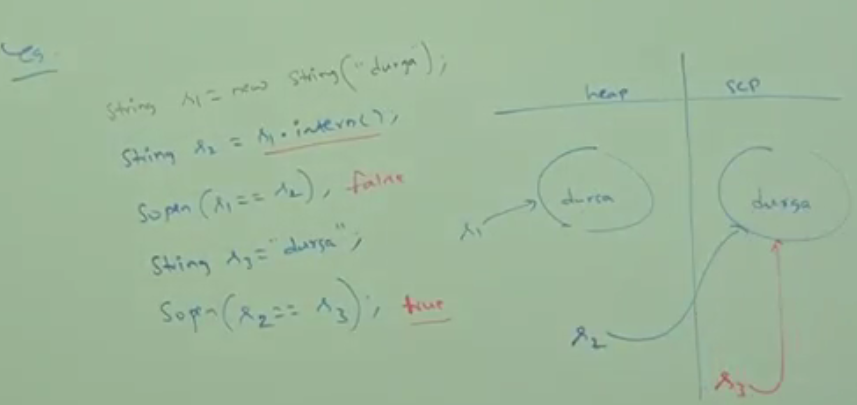 Eg.
String s1 = new String("durga");
String s2 = s1.intern();
Sopln(s1 == s2); false
String s3 = "durga";
Sopln(s2 == s3); true
heap scp
durga durga
s1
s2
s3